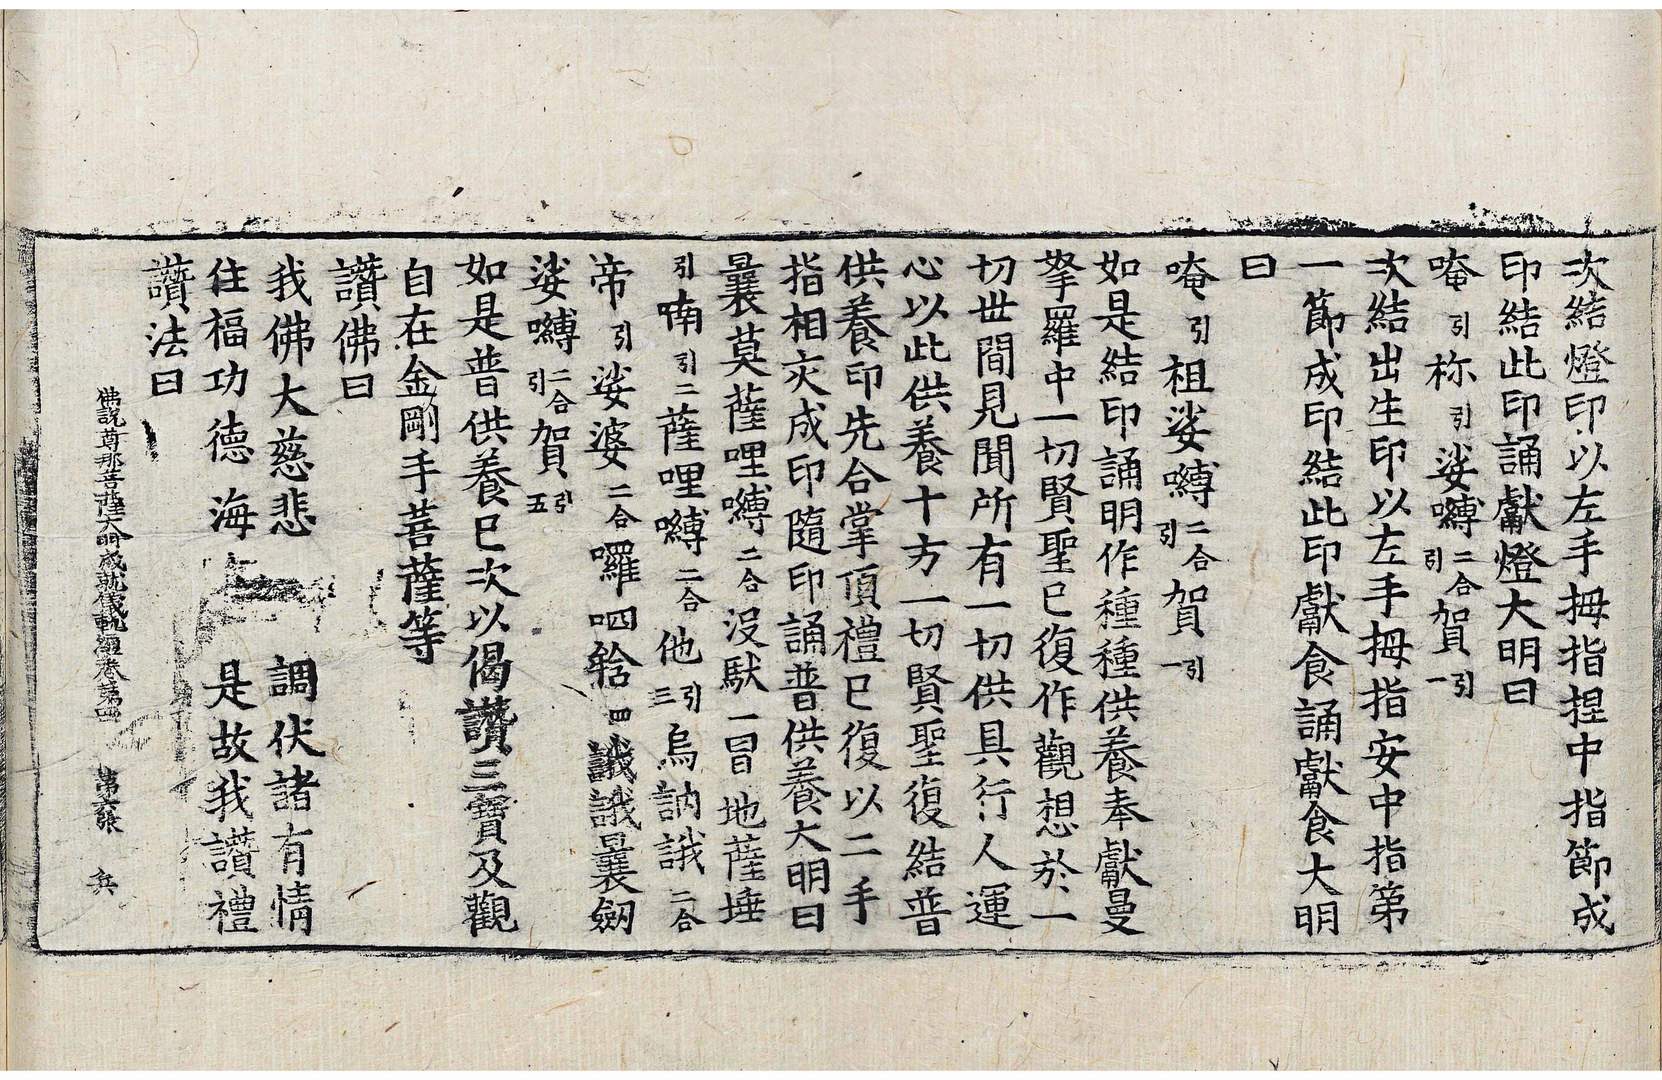 次結燈印以左手拇指捏中指節成
印結此印誦獻燈大明曰
唵引祢引娑嚩二合引賀引一
次結出生印以左手拇指安中指第
一節成印結此印獻食誦獻食大明
曰
唵引祖娑嚩二合引賀引一
如是結印誦明作種種供養奉獻曼
拏羅中一切賢聖已復作觀想於一
切世間見聞所有一切供具行人運
心以此供養十方一切賢聖復結普
供養印先合掌頂禮已復以二手
指相交成印隨印誦普供養大明曰
曩莫薩哩嚩二合沒馱一冒地薩埵
引喃引二薩哩嚩二合他引三烏訥誐二合
帝引娑婆二合囉呬𤚥四誐誐曩劒
娑嚩二合引賀引五
如是普供養已次以偈讚三寶及觀
自在金剛手菩薩等
讚佛曰
我佛大慈悲　調伏諸有情
住福功德海　是故我讚禮
讚法曰
佛說尊那菩薩大明成就儀軌經卷第四　第六張　兵